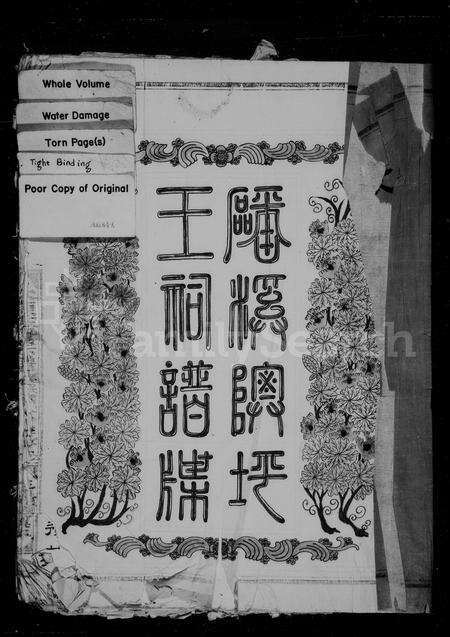 Whole Volume
Water Damage
Torn Page(s)
Tight Binding
Poor Copy of Original
磻溪隩
王祠譜牒
FamilySearch